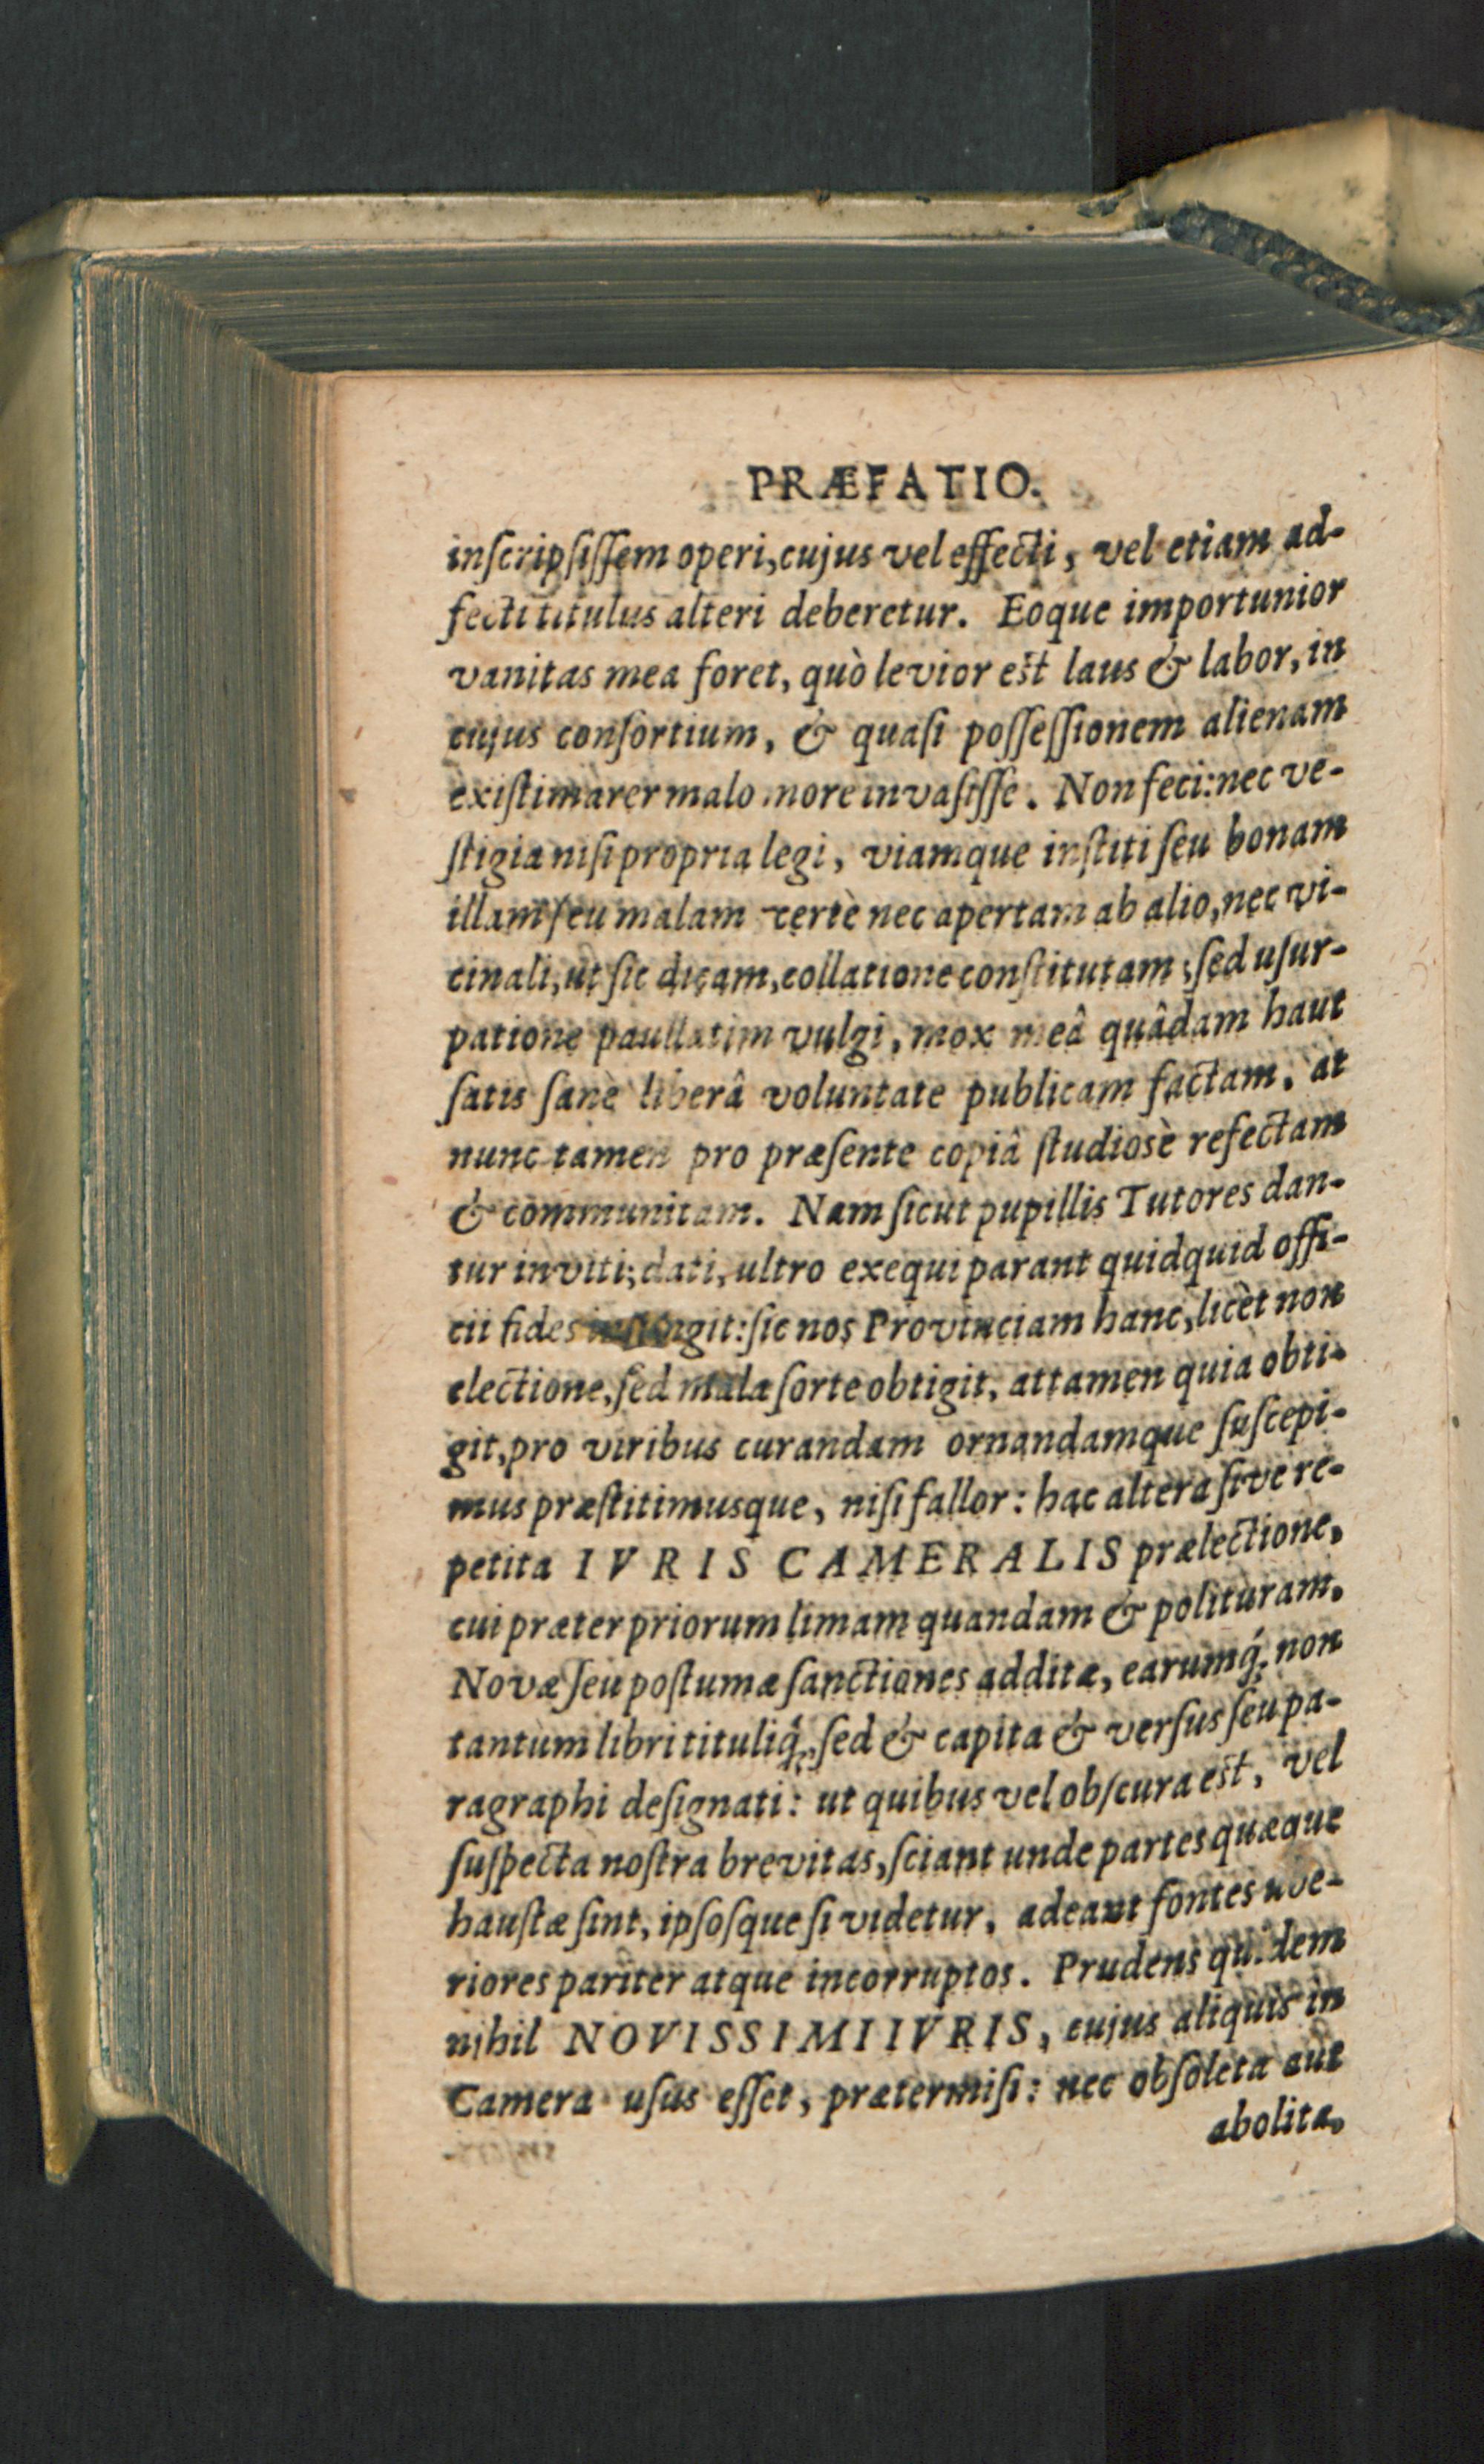 PRÆFATIO.
inſcripſiſſem operi, cujus vel effecti, vel etiam ad-
fecti titulus alteri deberetur. Eoque importunior
vanitas mea foret, quò levior est laus & labor, in
cujus conſortium, & quaſi poſſeſſionem alienam
exiſtimarer malo more invaſiſſe. Non feci: nec ve-
ſtigia niſi propria legi, viamque inſtiti ſeu bonam
illam ſeu malam certè nec apertam ab alio, nec vi-
cinali, ut ſic dicam, collatione conſtitutam; ſed uſur-
patione paullatim vulgi, mox meâ quâdam haut
ſatis ſanè liberâ voluntate publicam factam, at
nunc tamen pro præſente copiâ ſtudiosè refectam
& communitam. Nam ſicut pupillis Tutores dan-
tur inviti; dati, ultro exequi parant quidquid offi-
cii fides :ſic nos Provinciam hanc, licèt non
electione, ſed mala ſorte obtigit, attamen quia obti-
git, pro viribus curandam ornandamque ſuſcepi-
mus præſtitimusque, niſi fallor: hac altera ſive re-
petita IVRIS CAMERALIS prælectione,
cui præter priorum limam quandam & polituram,
Novæ ſeu poſtumæ ſanctiones additæ, earumq́; non
tantum libri tituliq́;, ſed & capita & versus ſeu pa-
ragraphi deſignati: ut quibus vel obſcura est, vel
ſuſpecta noſtra brevitas, ſciant unde partes quæque
hauſtæ ſint, ipſoſque ſi videtur, adeant fontes ube-
riores pariter atque incorruptos. Prudens quidem
nihil NOVISSIMI IVRIS, cujus aliquis in
Camera uſus eſſet, prætermiſi: nec obſoleta aut
abolita,